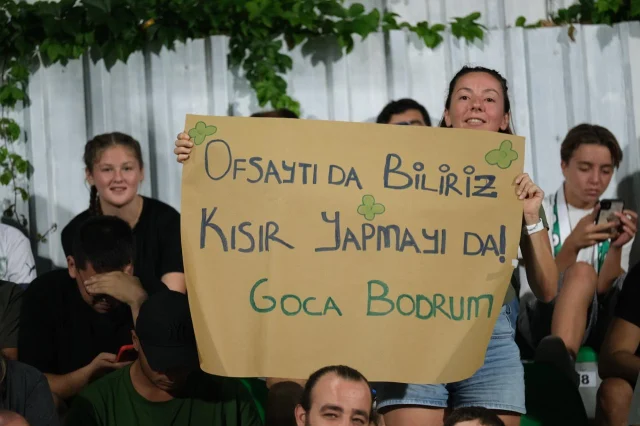 OFSAYTI DA BİLİRİZ
KISIR YAPMAYI DA!
GOCA BODRUM
8